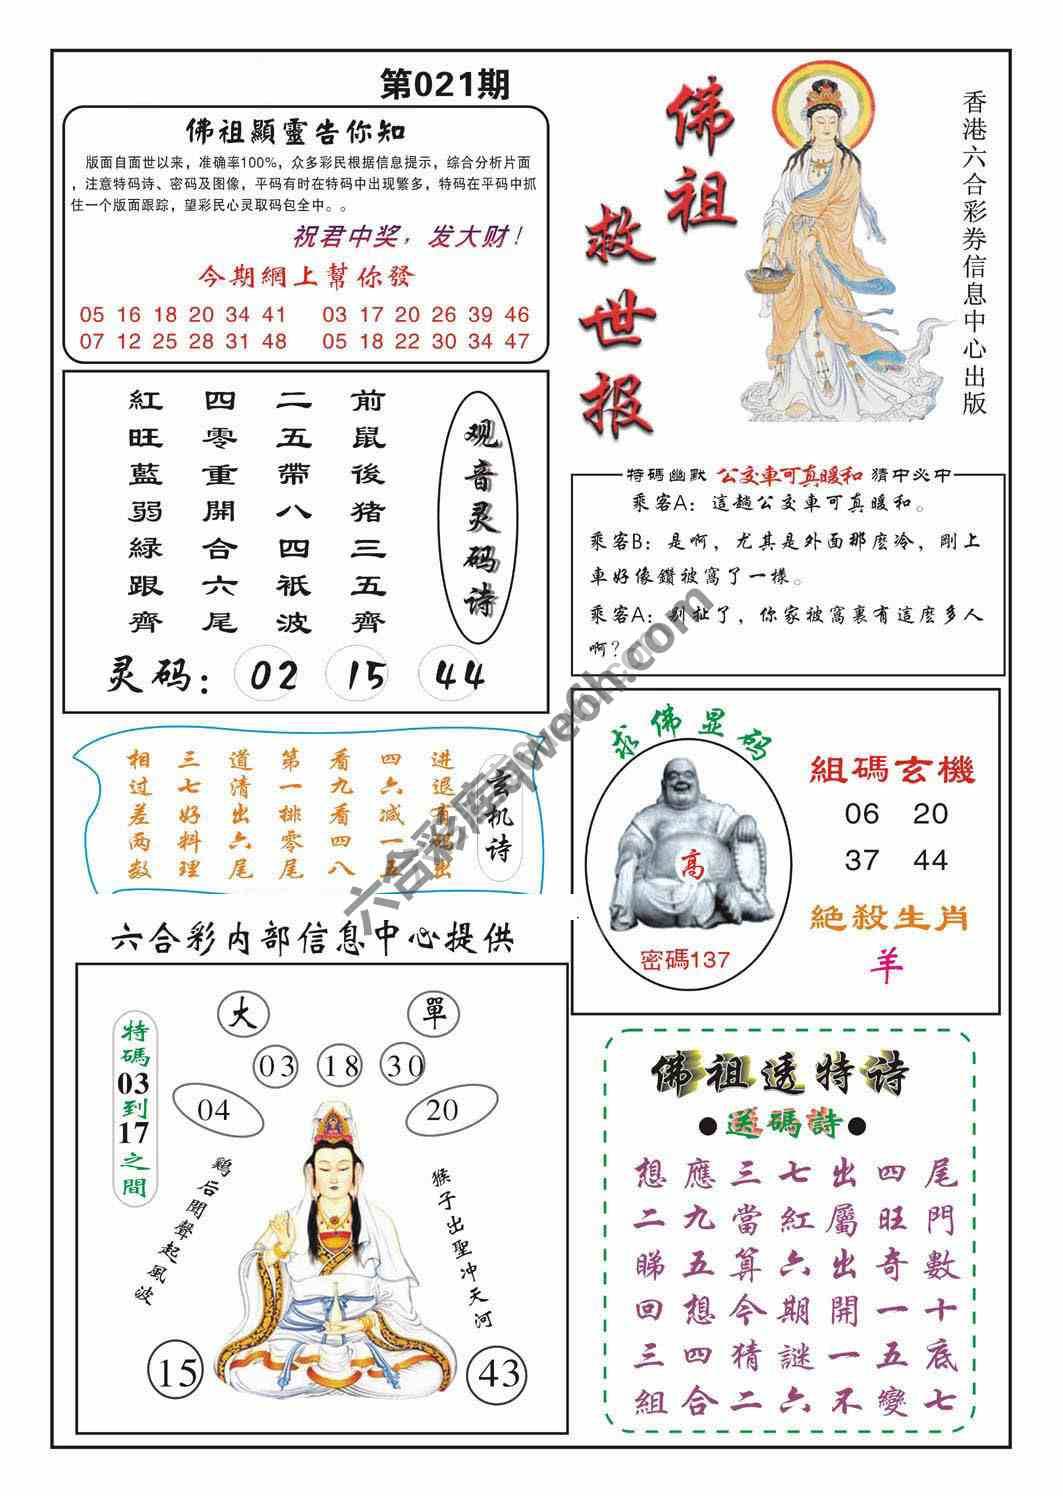 第021期
佛祖顯靈告你知
版面自面世以来，准确率100%，众多彩民根据信息提示，综合分析片面
，注意特码诗、密码及图像，平码有时在特码中出现繁多，特码在平码中抓
住一个版面跟踪，望彩民心灵取码包全中。。
祝君中奖，发大财！
今期網上幫你發
05 16 18 20 34 41 03 17 20 26 39 46
07 12 25 28 31 48 05 18 22 30 34 47
佛祖
救世报
香港六合彩券信息中心出版
前鼠後猪三五齊
二五帶八四衹波
四零重開合六尾
紅旺藍弱綠跟齊
观音灵码诗
灵码：02 15 44
特碼幽默 公交車可真暖和 猜中必中
乘客A：這趟公交車可真暖和。
乘客B：是啊，尤其是外面那麽冷，剛上
車好像鑽被窩了一樣。
乘客A：别扯了，你家被窩裏有這麽多人
啊？
玄机诗
進退有碼出
四六减一五
看九看四八
第一排零尾
道清出六尾
三七好料理
相过差两数
求佛显码
高
密碼137
組碼玄機
06 20
37 44
絕殺生肖
羊
六合彩内部信息中心提供
大 單
03 18 30
04 20
特碼03到17之間
鷄后聞聲起風波
猴子出聖冲天河
15 43
佛祖透特诗
●送碼詩●
想應三七出四尾
二九當紅屬旺門
睇五算六出奇數
回想今期開一十
三四猜謎一五底
組合二六不變七
六合彩库qwe6h.com